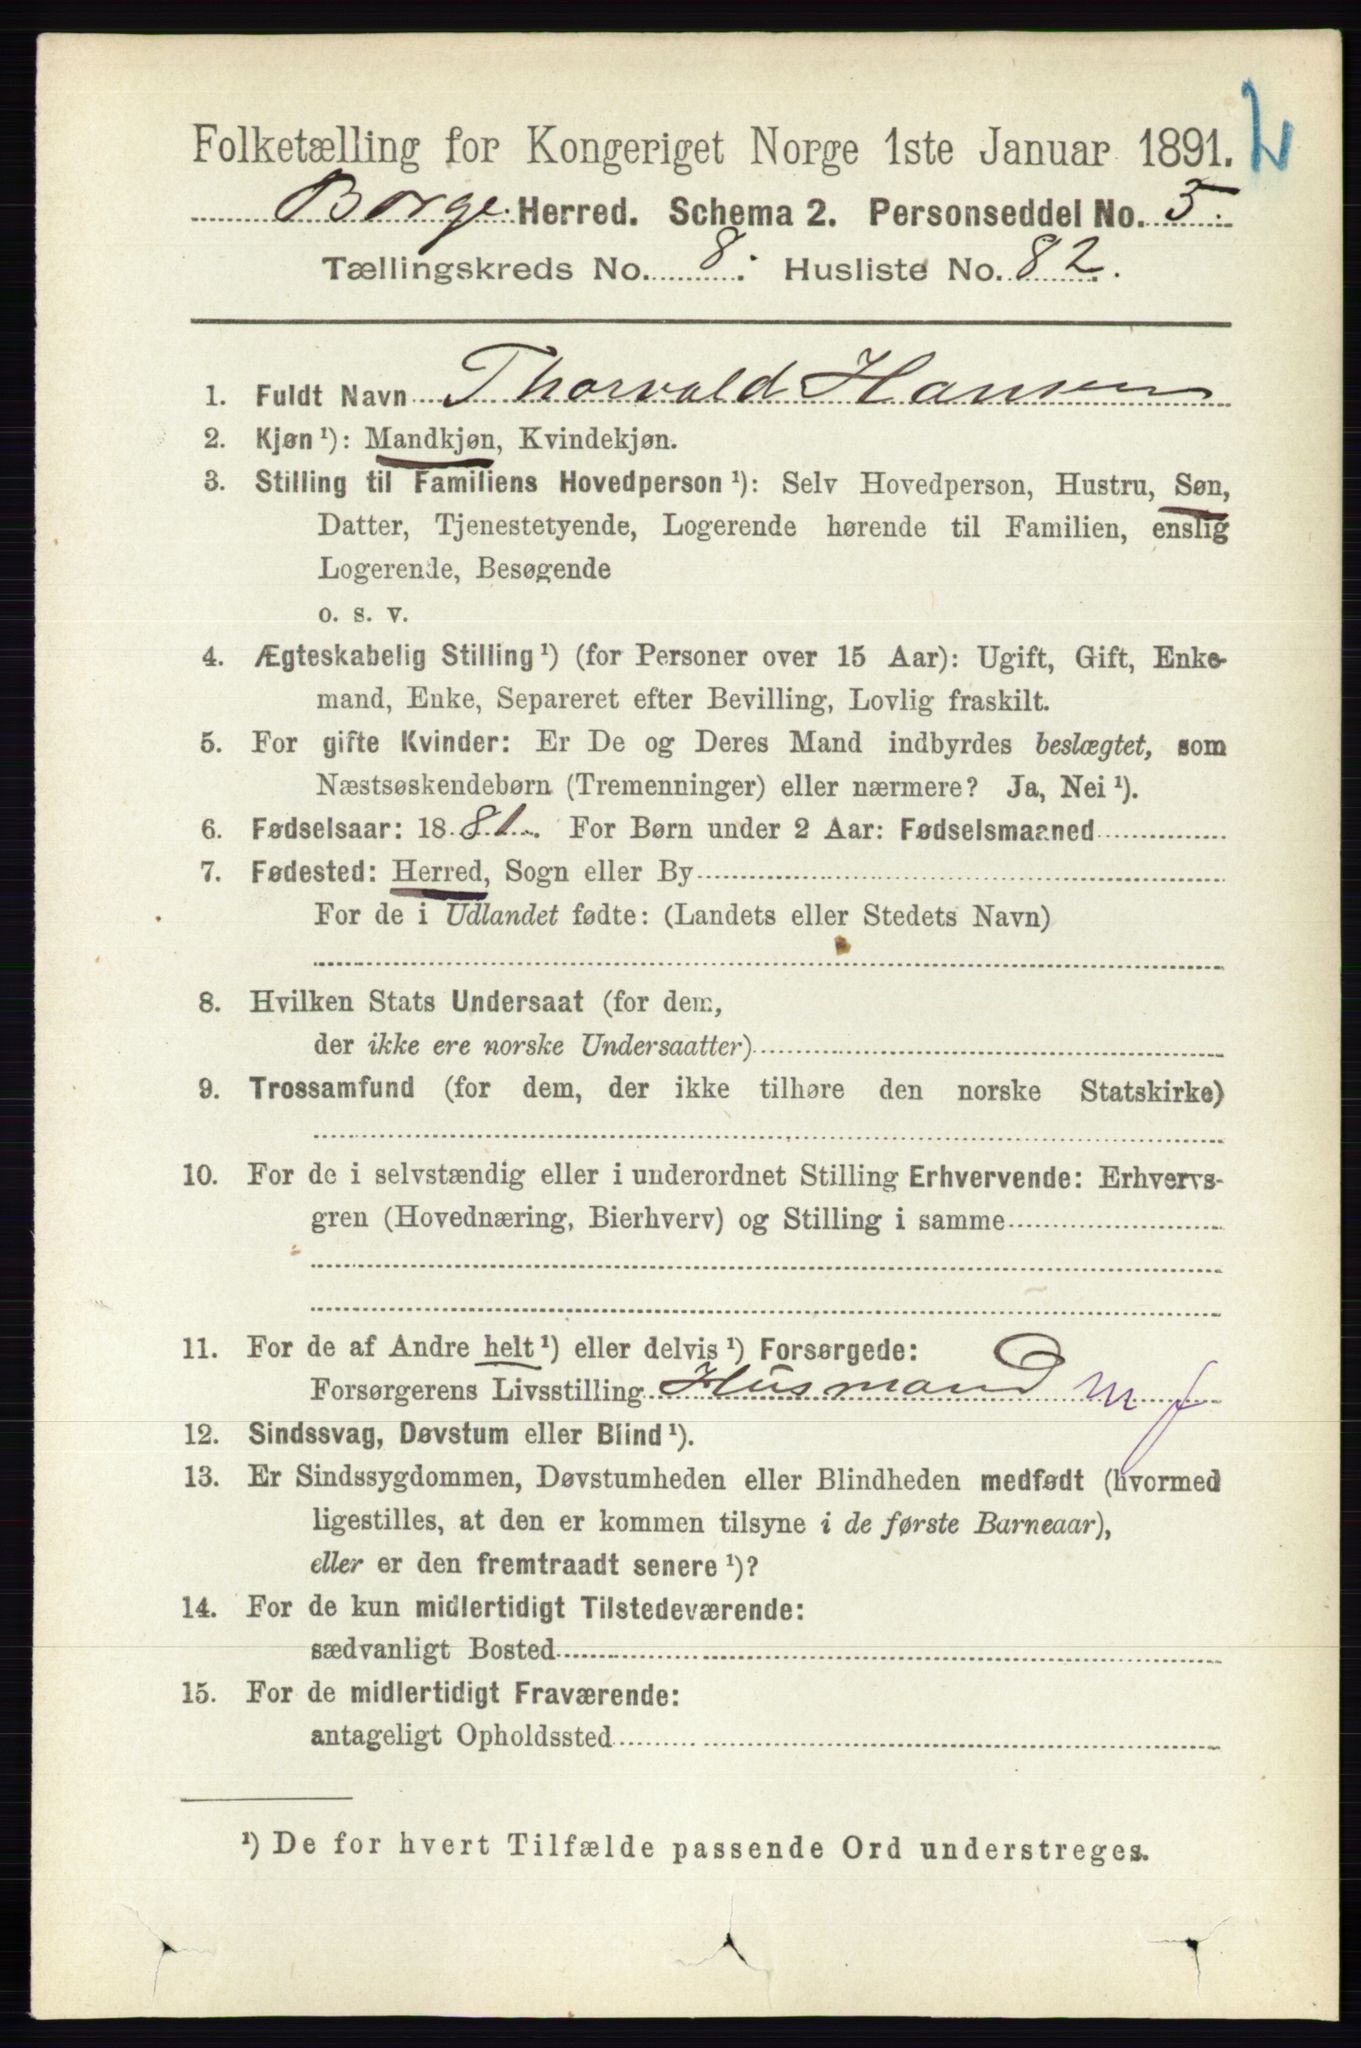 Folketælling for Kongeriget Norge 1ste Januar 1891.
Borge Herred. Schema 2. Personseddel No. 5.
Tællingskreds No. 8. Husliste No. 82.
1. Fuldt Navn Thorvald Hansen
2. Kjøn ¹): Mandkjøn, Kvindekjøn.
3. Stilling til Familiens Hovedperson ¹): Selv Hovedperson, Hustru, Søn,
Datter, Tjenestetyende, Logerende hørende til Familien, enslig
Logerende, Besøgende
o. s. v.
4. Ægteskabelig Stilling ¹) (for Personer over 15 Aar): Ugift, Gift, Enke-
mand, Enke, Separeret efter Bevilling, Lovlig fraskilt.
5. For gifte Kvinder: Er De og Deres Mand indbyrdes beslægtet, som
Næstsøskendebørn (Tremenninger) eller nærmere? Ja, Nei ¹).
6. Fødselsaar: 1881. For Børn under 2 Aar: Fødselsmaaned
7. Fødested: Herred, Sogn eller By
For de i Udlandet fødte: (Landets eller Stedets Navn)
8. Hvilken Stats Undersaat (for dem,
der ikke ere norske Undersaatter)
9. Trossamfund (for dem, der ikke tilhøre den norske Statskirke)
10. For de i selvstændig eller i underordnet Stilling Erhvervende: Erhvervs-
gren (Hovednæring, Bierhverv) og Stilling i samme
11. For de af Andre helt ¹) eller delvis ¹) Forsørgede:
Forsørgerens Livsstilling Husmand
12. Sindssvag, Døvstum eller Blind ¹).
13. Er Sindssygdommen, Døvstumheden eller Blindheden medfødt (hvormed
ligestilles, at den er kommen tilsyne i de første Barneaar),
eller er den fremtraadt senere ¹)?
14. For de kun midlertidigt Tilstedeværende:
sædvanligt Bosted
15. For de midlertidigt Fraværende:
antageligt Opholdssted
¹) De for hvert Tilfælde passende Ord understreges.